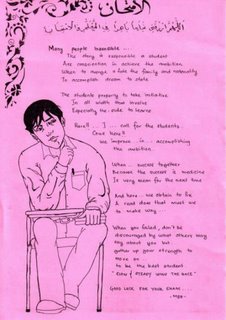 Many people impossible ...
The story is responsible a student
Are consciention in achieve the ambition
When to mange a fate the family and nationality
To accomplish dream to state
The students property to take initiative
In all width that involve
Especially the side to learns
Here!! .. I ... call for the students
Come Here!!
We improve in .. accomplishing
the ambition.
When ... success together
Because the success is medicine
Is very mean for the next time
And here .. we obtain to fix
A road does that must we
to make way...
When you failed, don't be
discouraged by what others may
say about you but
gather up your strength to
move on ...
to be the best student
"SLOW & STEADY WINS THE RACE"
GOOD LUCK FOR YOUR EXAM...